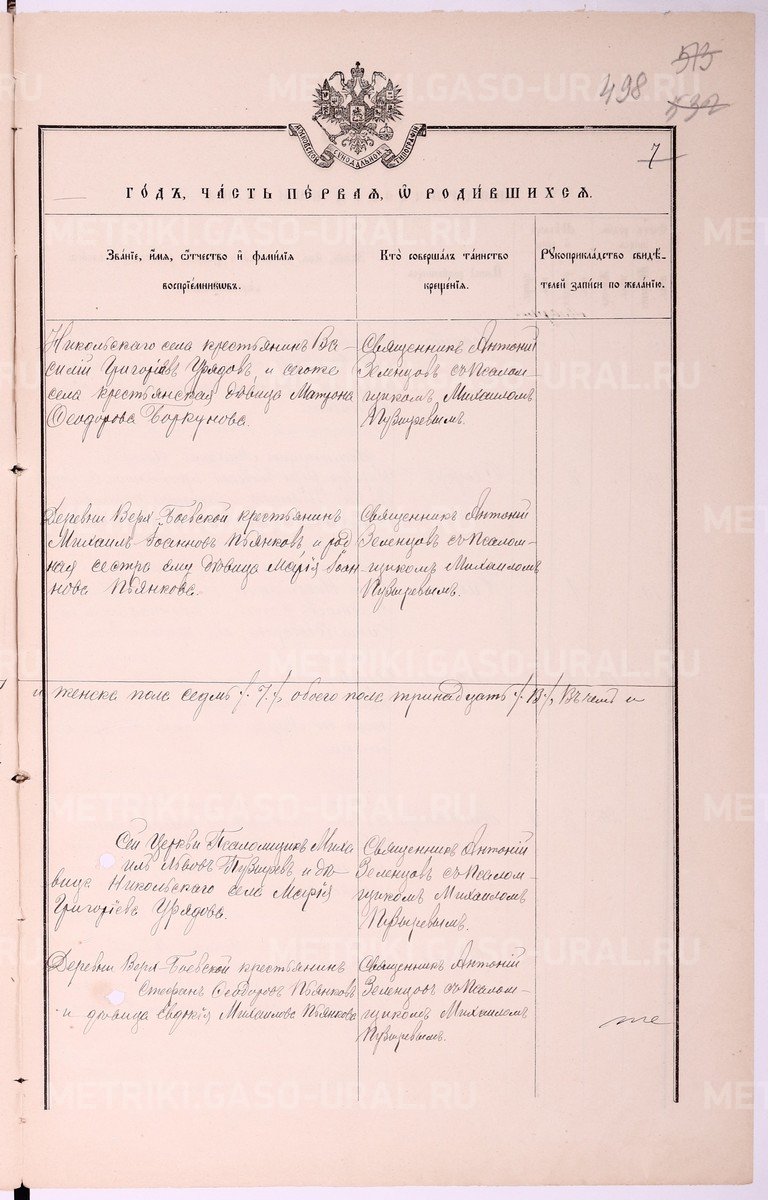 573
498
532
МОСКОВСКОЙ СѴНОДАЛЬНОЙ ТИПОГРАФІИ
7
ГО́ДЪ, ЧА́СТЬ ПЕ́РВАЯ, Ѽ РОДИ́ВШИХСЯ.
Зва́нїе, и҆́мя, ѻ҆́тчество и҆ фами́лїя
воспрїе́мниковъ.
Кто̀ соверша́лъ та́инство
креще́нїя.
Рꙋкоприкла́дство свидѣ́-
телей за́писи по жела́нїю.
Никольскаго села крестьянинъ Ва-
силій Григоріевъ Урядовъ, и тогоже
села крестьянская дѣвица Матрона
Ѳеодорова Чоркунова.
Священникъ Антоній
Зеленцовъ съ Псалом-
щикомъ Михаиломъ
Пузыревымъ.
Деревни Верх-Боевской крестьянинъ
Михаилъ Іоанновъ Пьянковъ, и род-
ная сестра ему дѣвица Марія Іоан-
нова Пьянкова.
Священникъ Антоній
Зеленцовъ съ Псалом-
щикомъ Михаиломъ
Пузыревымъ.
и женска пола седмь /.7./, обоего пола тринадцать /.13./, Въ чемъ и
Сей Церкви Псаломщикъ Миха-
илъ Львовъ Пузыревъ и дѣ-
вица Никольскаго села Марія
Григоріева Урядова.
Священникъ Антоній
Зеленцовъ съ Псалом-
щикомъ Михаиломъ
Пузыревымъ.
Деревни Верх-Боевской крестьянинъ
Стефанъ Ѳеодоровъ Пьянковъ
и дѣвица Евдокія Михаилова Пьянкова
Священникъ Антоній
Зеленцовъ съ Псалом-
щикомъ Михаиломъ
Пузыревымъ.
METRIKI.GASO-URAL.RU